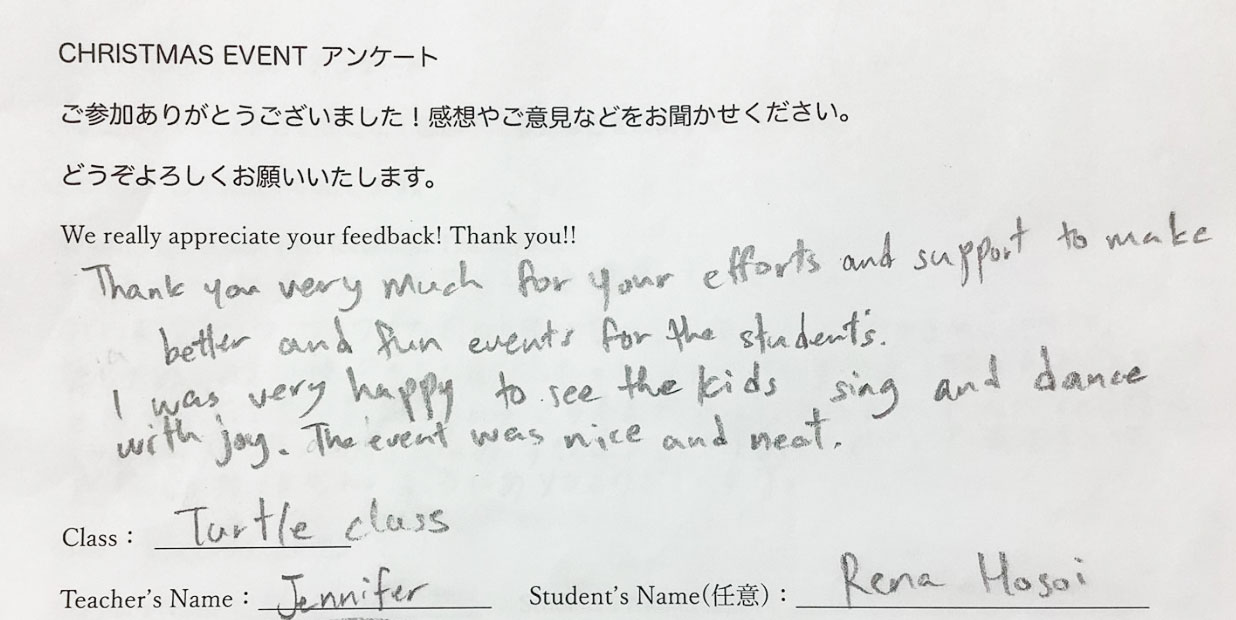 CHRISTMAS EVENT アンケート
ご参加ありがとうございました！感想やご意見などをお聞かせください。
どうぞよろしくお願いいたします。
We really appreciate your feedback! Thank you!!
Thank you very much for your efforts and support to make
better and fun events for the student's.
I was very happy to see the kids sing and dance
with joy. The event was nice and neat.
Class： Turtle class
Teacher's Name： Jennifer Student's Name(任意)： Rena Hosoi